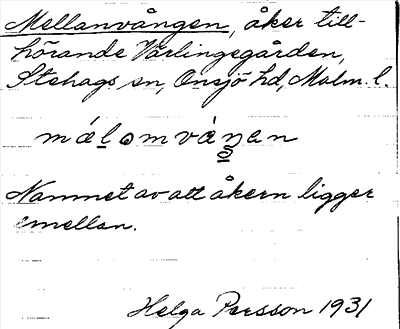 Mellanvången, åker till-
hörande Värlingegården,
Stehags sn, Onsjö hd, Malm. l.
Nammet av att åkern ligger
emellan.
Helga Persson 1931